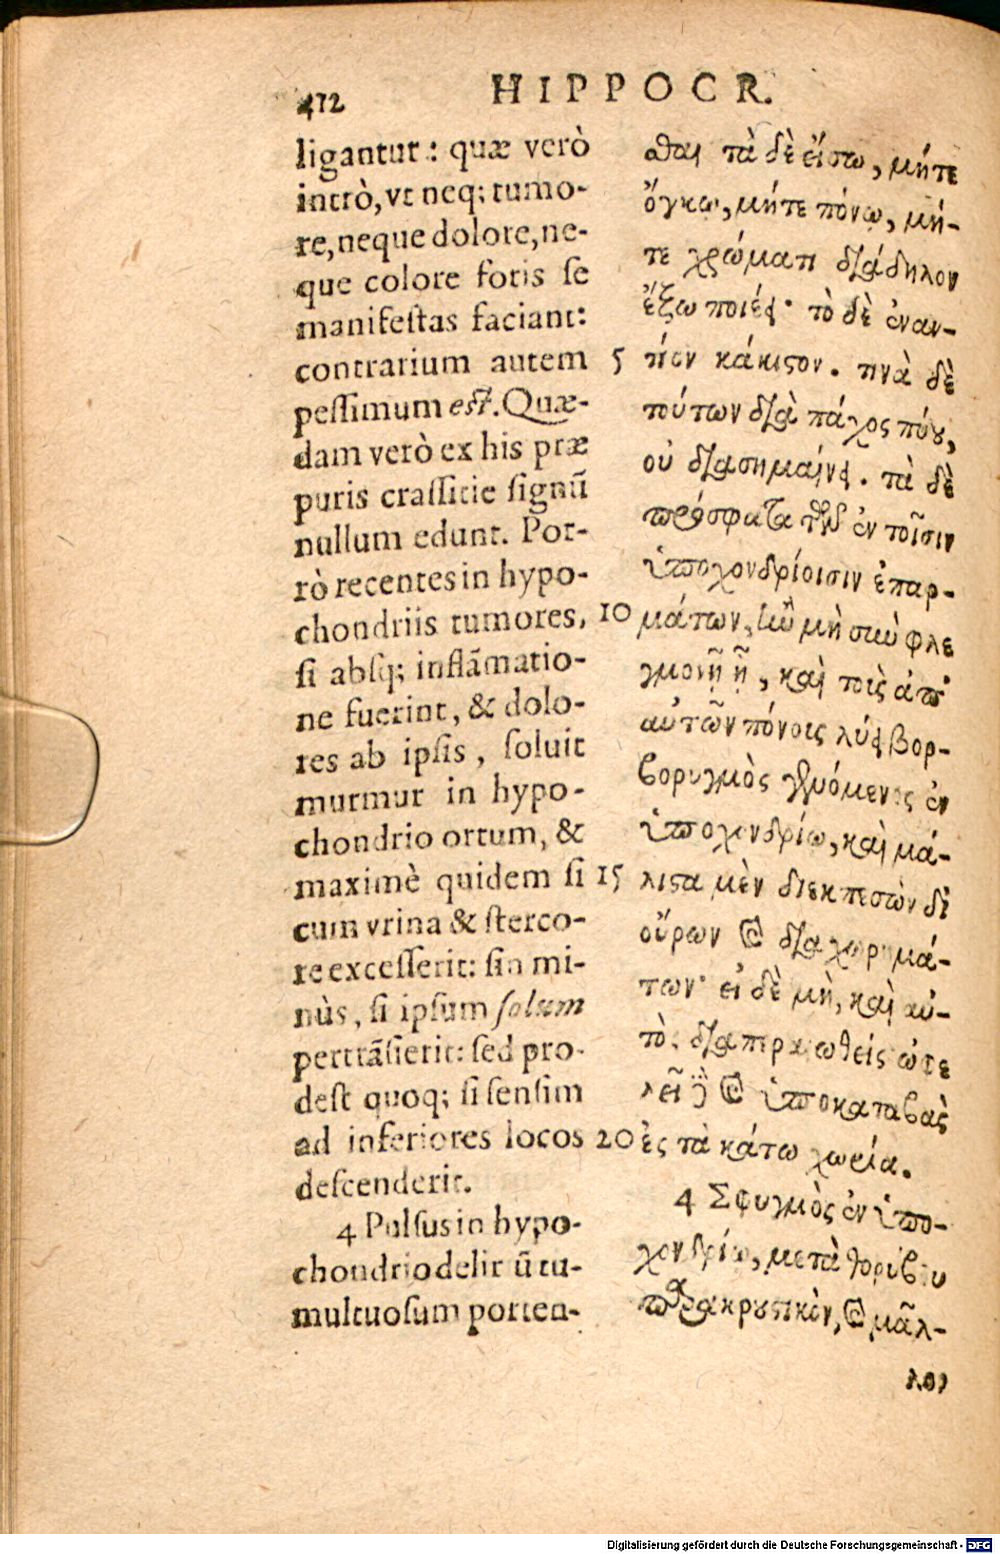 412
HIPPOCR.
ligantur: quæ verò
intrò, vt neq; tumo-
re, neque dolore, ne-
que colore foris se
manifestas faciant:
contrarium autem
pessimum est. Quæ-
dam verò ex his præ
puris crassitie signũ
nullum edunt. Por-
rò recentes in hypo-
chondriis tumores,
si absq; inflãmatio-
ne fuerint, & dolo-
res ab ipsis, soluit
murmur in hypo-
chondrio ortum, &
maximè quidem si
cum vrina & sterco-
re excesserit: sin mi-
nùs, si ipsum solum
pertrãsierit: sed pro-
dest quoq; si sensim
ad inferiores locos
descenderit.
4 Pulsus in hypo-
chondrio delir ũ tu-
multuosum porten-
5
10
15
20
σθαι τὰ δὲ εἴσω, μήτε
ὄγκῳ, μήτε πόνῳ, μή-
τε χρώματι διάδηλον
ἔξω ποιέει· τὸ δὲ ἐναν-
τίον κάκιστον. τινὰ δὲ
τούτων διὰ πάχος πύου,
οὐ διασημαίνει. τὰ δὲ
πρόσφατα τῶν ἐν τοῖσιν
ὑποχονδρίοισιν ἐπαρ-
μάτων, ἢν μὴ σὺν φλε
γμονῇ ᾖ, καὶ τοὺς ἀπ'
αὐτῶν πόνους λύει βορ-
βορυγμὸς γενόμενος ἐν
ὑποχονδρίῳ, καὶ μά-
λιστα μὲν διεκπεσὼν δι'
οὔρων καὶ διαχωρημά-
των· εἰ δὲ μὴ, καὶ αὐ-
τὸ. διαπεραιωθείς ὠφε
λεῖ δὲ καὶ ὑποκαταβὰς
ἐς τὰ κάτω χωρία.
4 Σφυγμὸς ἐν ὑπο-
χονδρίῳ, μετὰ θορύβου
παρακρουστικὸν, καὶ μᾶλ-
λον
Digitalisierung gefördert durch die Deutsche Forschungsgemeinschaft - DFG